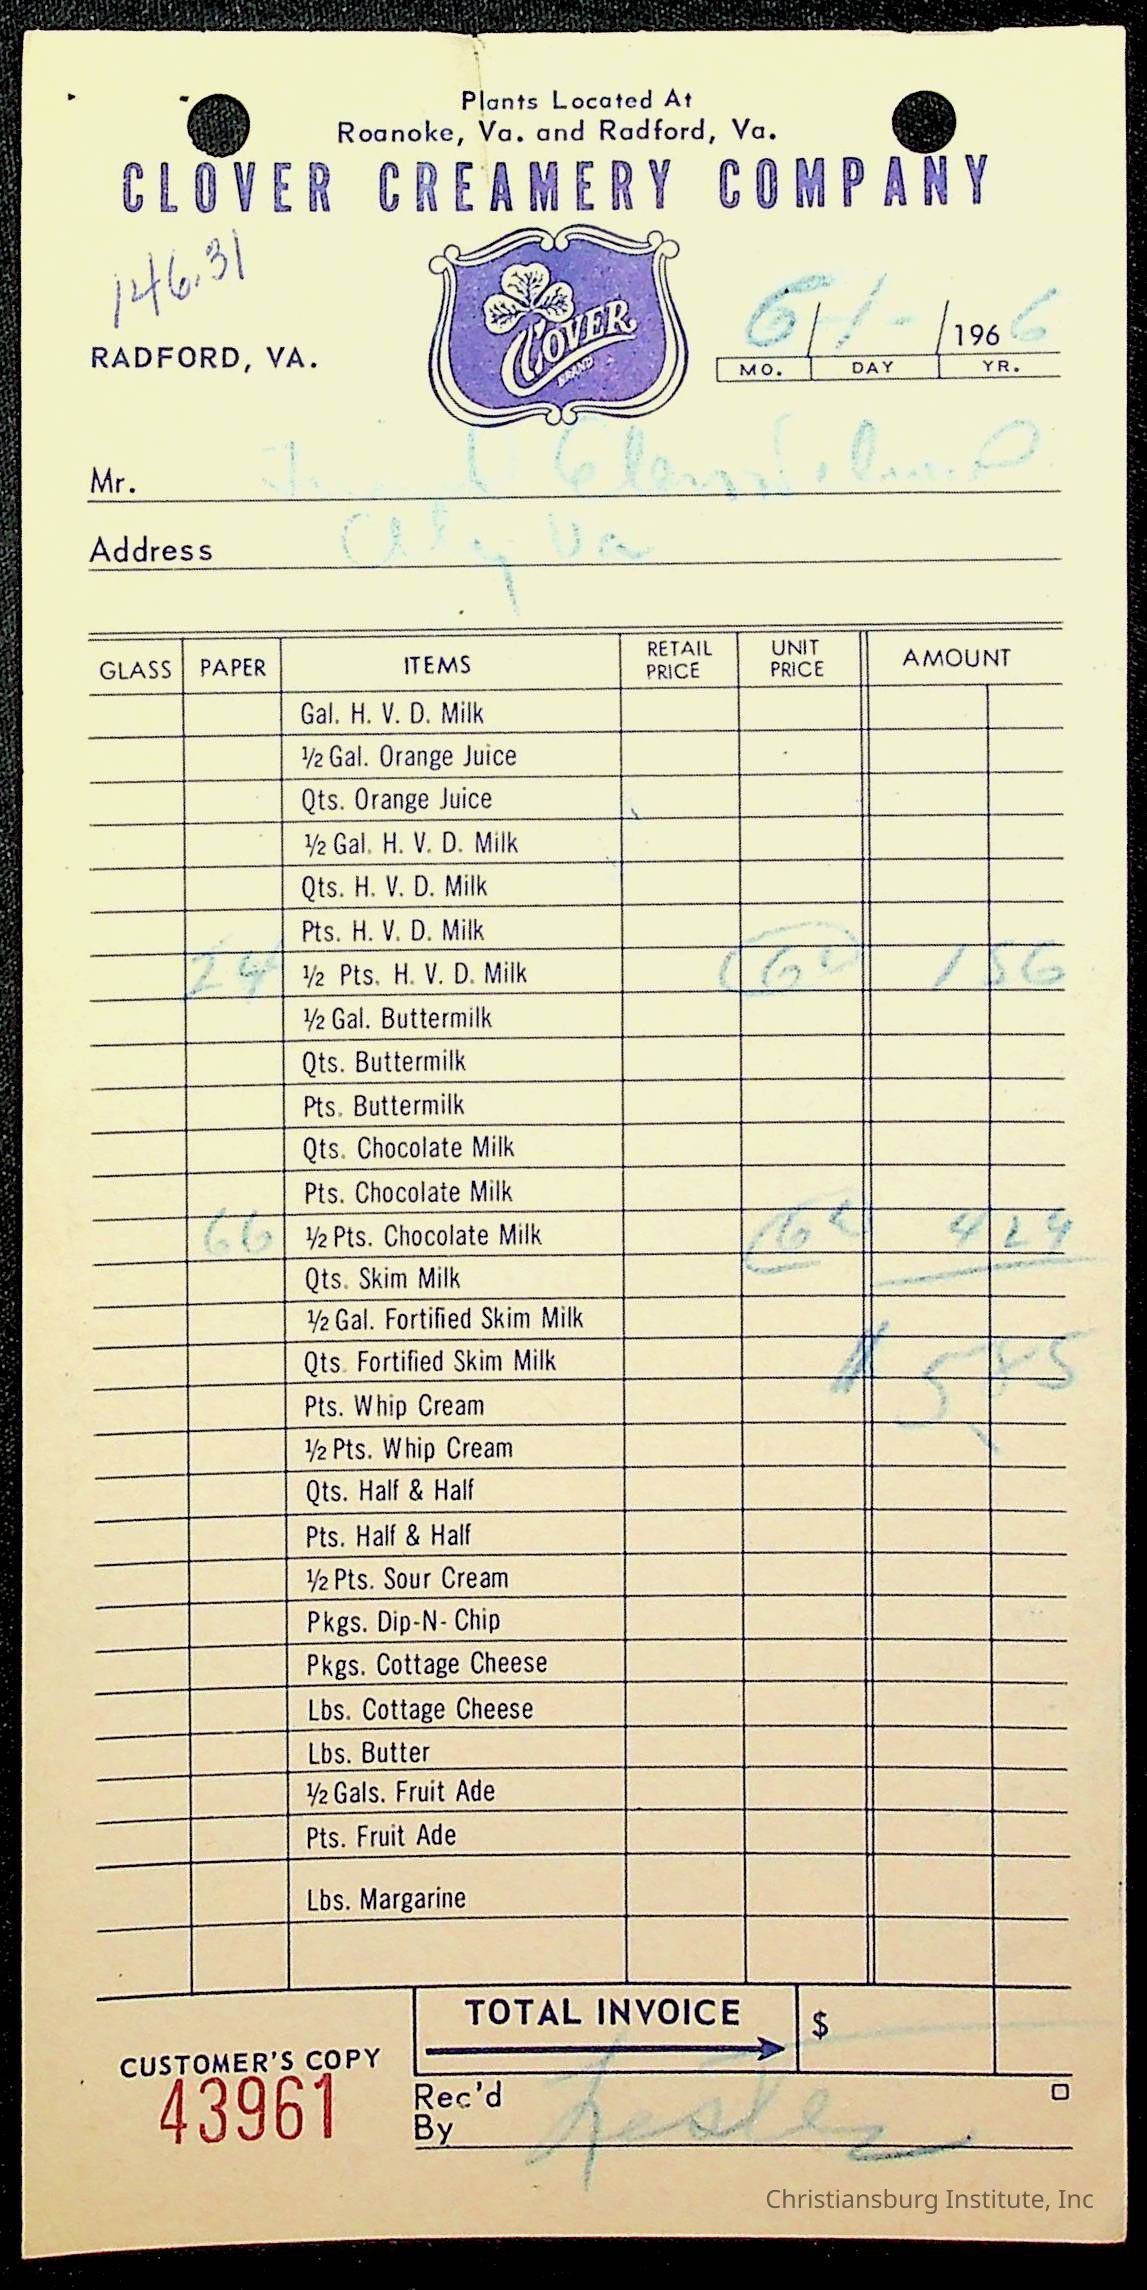 Plants Located At
Roanoke, Va. and Radford, Va.
CLOVER CREAMERY COMPANY
146.31
CLOVER
BRAND
6/1/1966
RADFORD, VA.
MO. DAY YR.
Mr.
Address Va
GLASS PAPER ITEMS RETAIL PRICE UNIT PRICE AMOUNT
Gal. H. V. D. Milk
½ Gal. Orange Juice
Qts. Orange Juice
½ Gal. H. V. D. Milk
Qts. H. V. D. Milk
Pts. H. V. D. Milk
24 ½ Pts. H. V. D. Milk 1 56
½ Gal. Buttermilk
Qts. Buttermilk
Pts. Buttermilk
Qts. Chocolate Milk
Pts. Chocolate Milk
66 ½ Pts. Chocolate Milk 4 29
Qts. Skim Milk
½ Gal. Fortified Skim Milk
Qts. Fortified Skim Milk $ 5 85
Pts. Whip Cream
½ Pts. Whip Cream
Qts. Half & Half
Pts. Half & Half
½ Pts. Sour Cream
Pkgs. Dip-N-Chip
Pkgs. Cottage Cheese
Lbs. Cottage Cheese
Lbs. Butter
½ Gals. Fruit Ade
Pts. Fruit Ade
Lbs. Margarine
TOTAL INVOICE $
CUSTOMER'S COPY
43961
Rec'd
By Lester
Christiansburg Institute, Inc